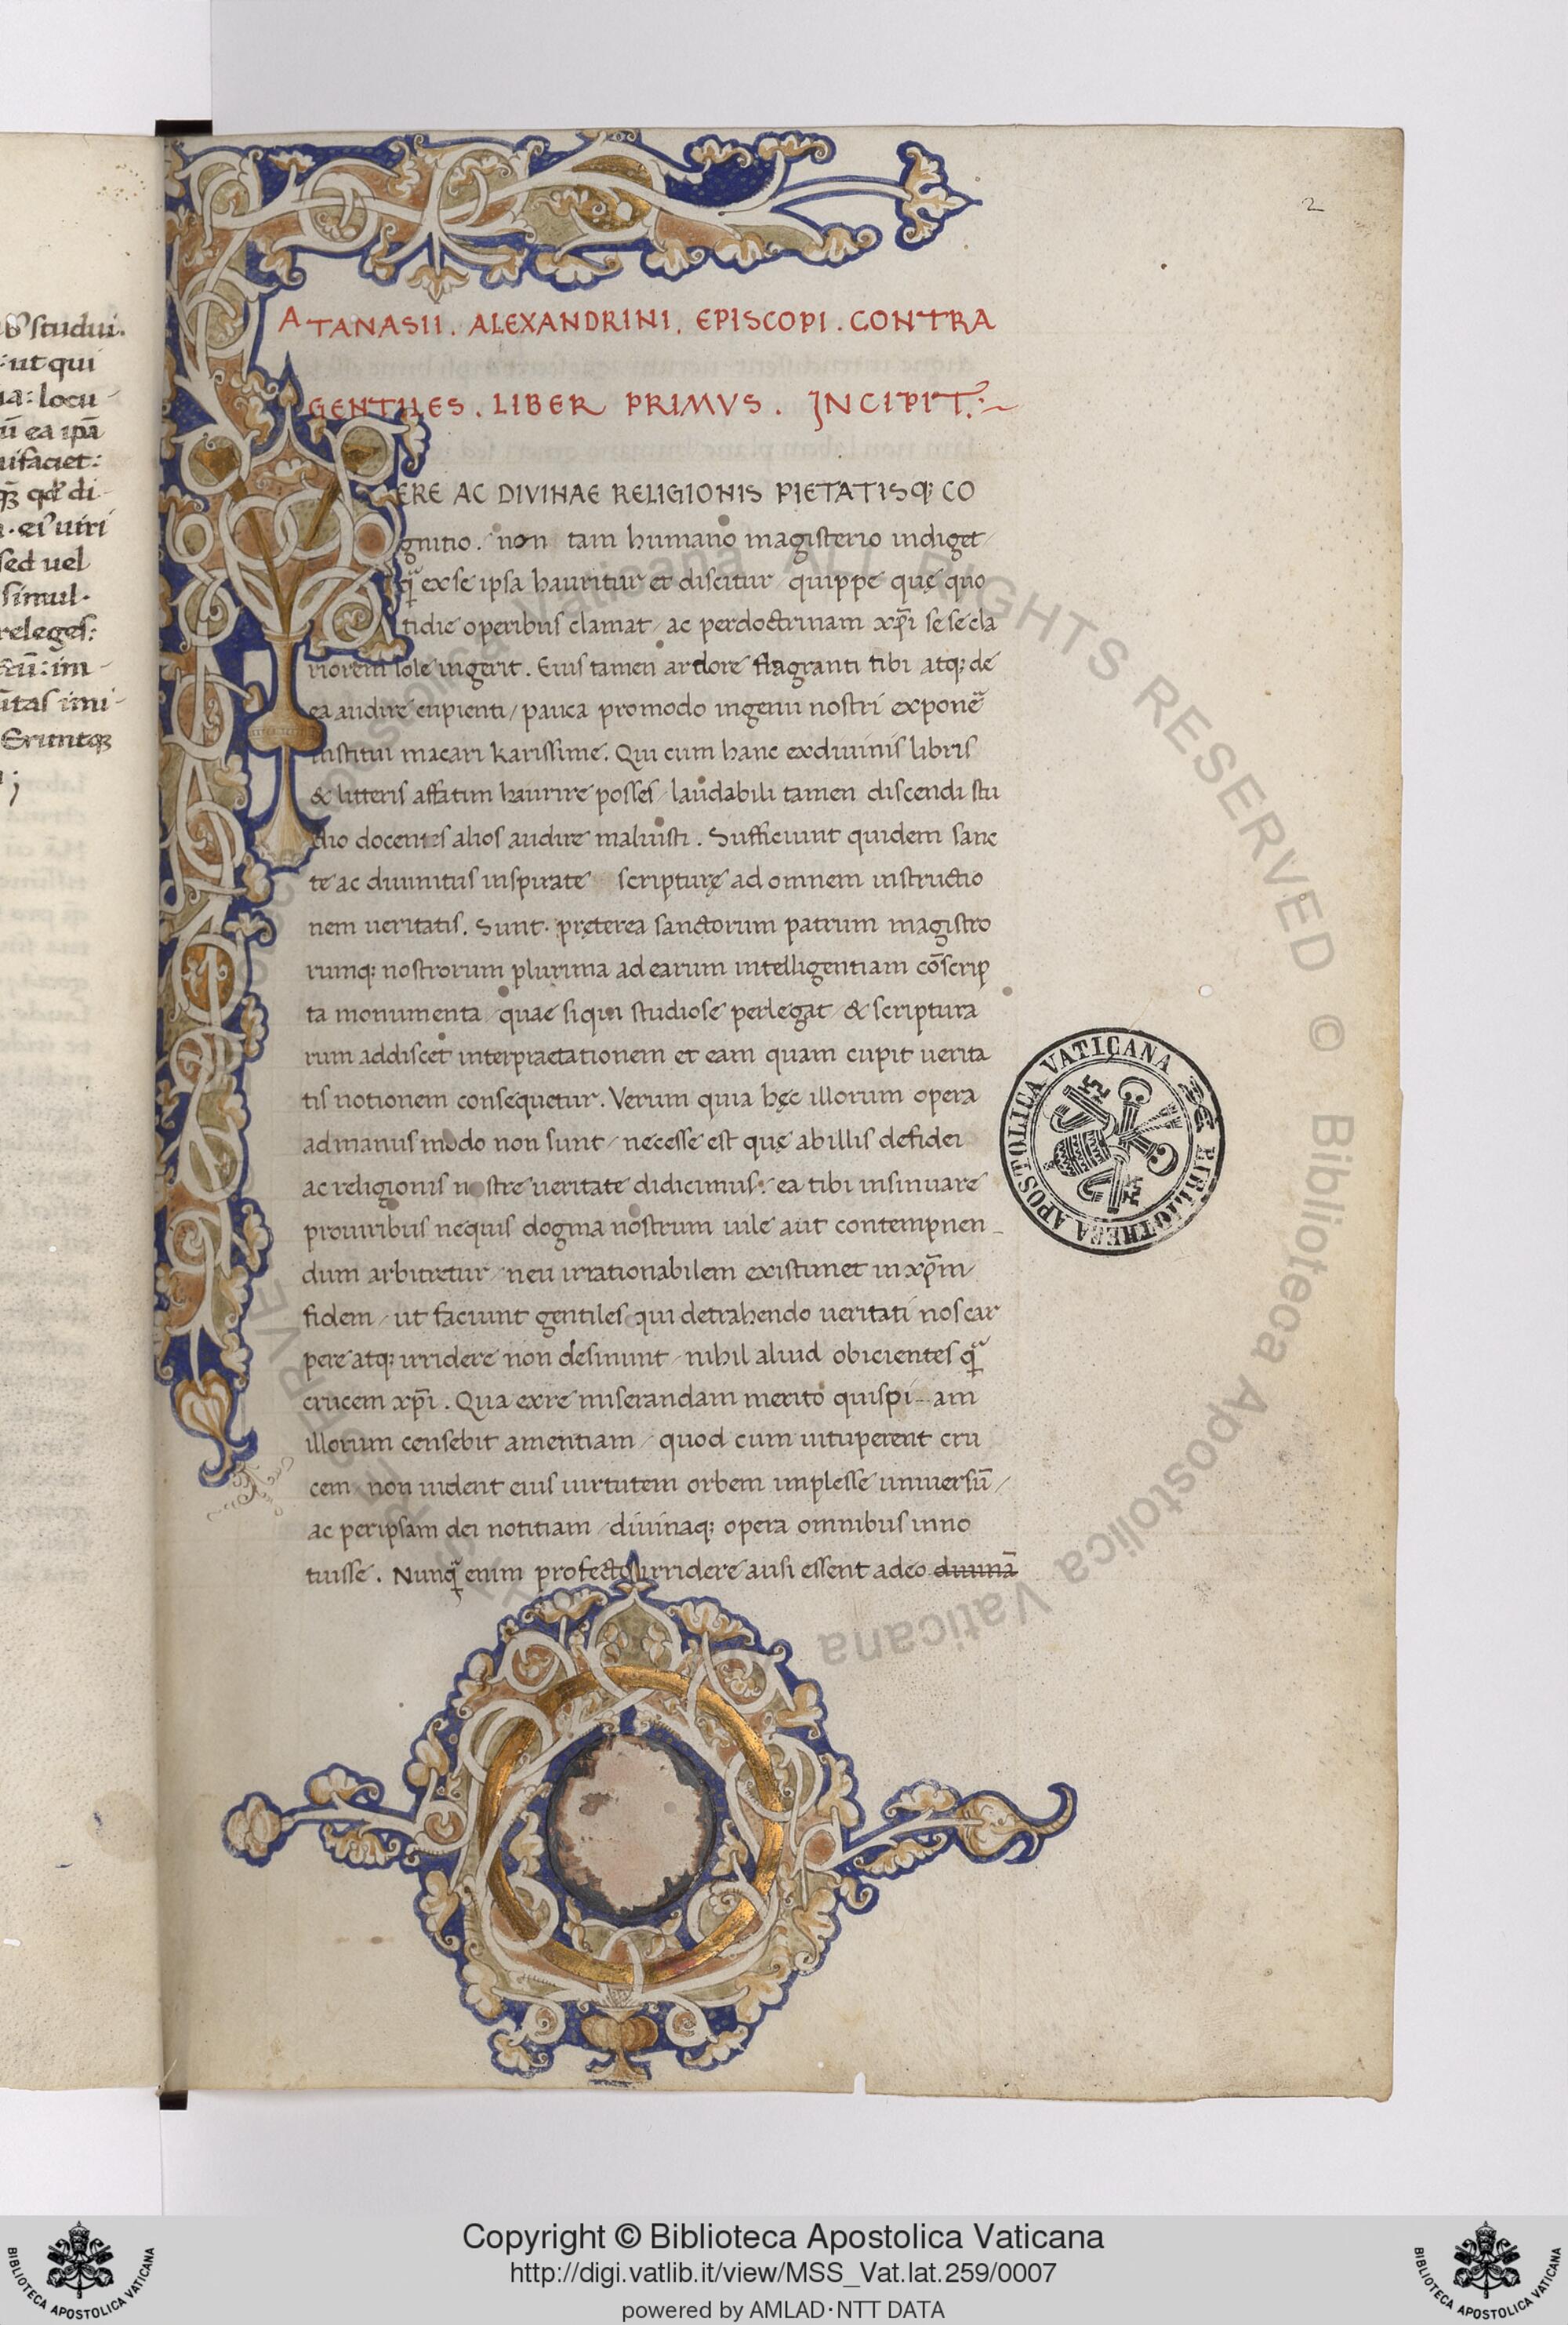 studui.
: ut qui
na: locu-
ū ea ipā
uifaciet:
qȝ qd̄ di-
. ei uiri
sed uel
simul.
releges:
cū: im-
ītas imi-
Eruntqȝ
;
2
ATANASII. ALEXANDRINI. EPISCOPI. CONTRA
GENTILES. LIBER PRIMVS. INCIPIT.
VERE AC DIVINAE RELIGIONIS PIETATISQ; CO
gnitio. non tam humano magisterio indiget/
qᷓ ex se ipsa hauritur et discitur/ quippe quę quo
tidie operibus clamat/ ac per doctrinam xp̄i se se cla
riorem sole ingerit. Eius tamen ardore flagranti tibi atq; de
ea audire cupienti/ pauca pro modo ingenii nostri exponeᷓ
institui macari karissime. Qui cum hanc ex diuinis libris
& litteris affatim haurire posses/ laudabili tamen discendi stu
dio docentes alios audire maluisti. Sufficiunt quidem sanc
te ac diuinitus inspirate scripturę ad omnem instructio
nem ueritatis. Sunt. pręterea sanctorum patrum magistro
rumq; nostrorum plurima ad earum intelligentiam cōscrip
ta monumenta/ quae siquis studiose perlegat/ & scriptura
rum addiscet interpraetationem et eam quam cupit uerita
tis notionem consequetur. Verum quia hęc illorum opera
ad manus modo non sunt/ necesse est quę ab illis de fidei
ac religionis nostre ueritate didicimus: ea tibi insinuare
pro uiribus nequis dogma nostrum uile aut contempnen-
dum arbitretur/ neu irrationabilem existimet in xp̄m/
fidem/ ut faciunt gentiles qui detrahendo ueritati nos car
pere atq; irridere non desinunt/ nihil aliud obicientes qᷓ
crucem xp̄i. Qua ex re miserandam merito quispi-am
illorum censebit amentiam/ quod cum uituperent cru
cem non uident eius uirtutem orbem implesse uniuersū/
ac per ipsam dei notitiam/ diuinaq; opera omnibus inno
tuisse. Nunqᷓ enim profecto irridere ausi essent adeo diuinā
BIBLIOTHECA APOSTOLICA VATICANA
Biblioteca Apostolica Vaticana ALL RIGHTS RESERVED © Biblioteca Apostolica Vaticana
Copyright © Biblioteca Apostolica Vaticana
http://digi.vatlib.it/view/MSS_Vat.lat.259/0007
powered by AMLAD·NTT DATA
BIBLIOTECA APOSTOLICA VATICANA
BIBLIOTECA APOSTOLICA VATICANA